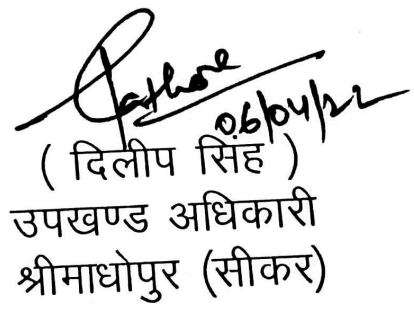 Rathore
06/04/22
( दिलीप सिंह )
उपखण्ड अधिकारी
श्रीमाधोपुर (सीकर)